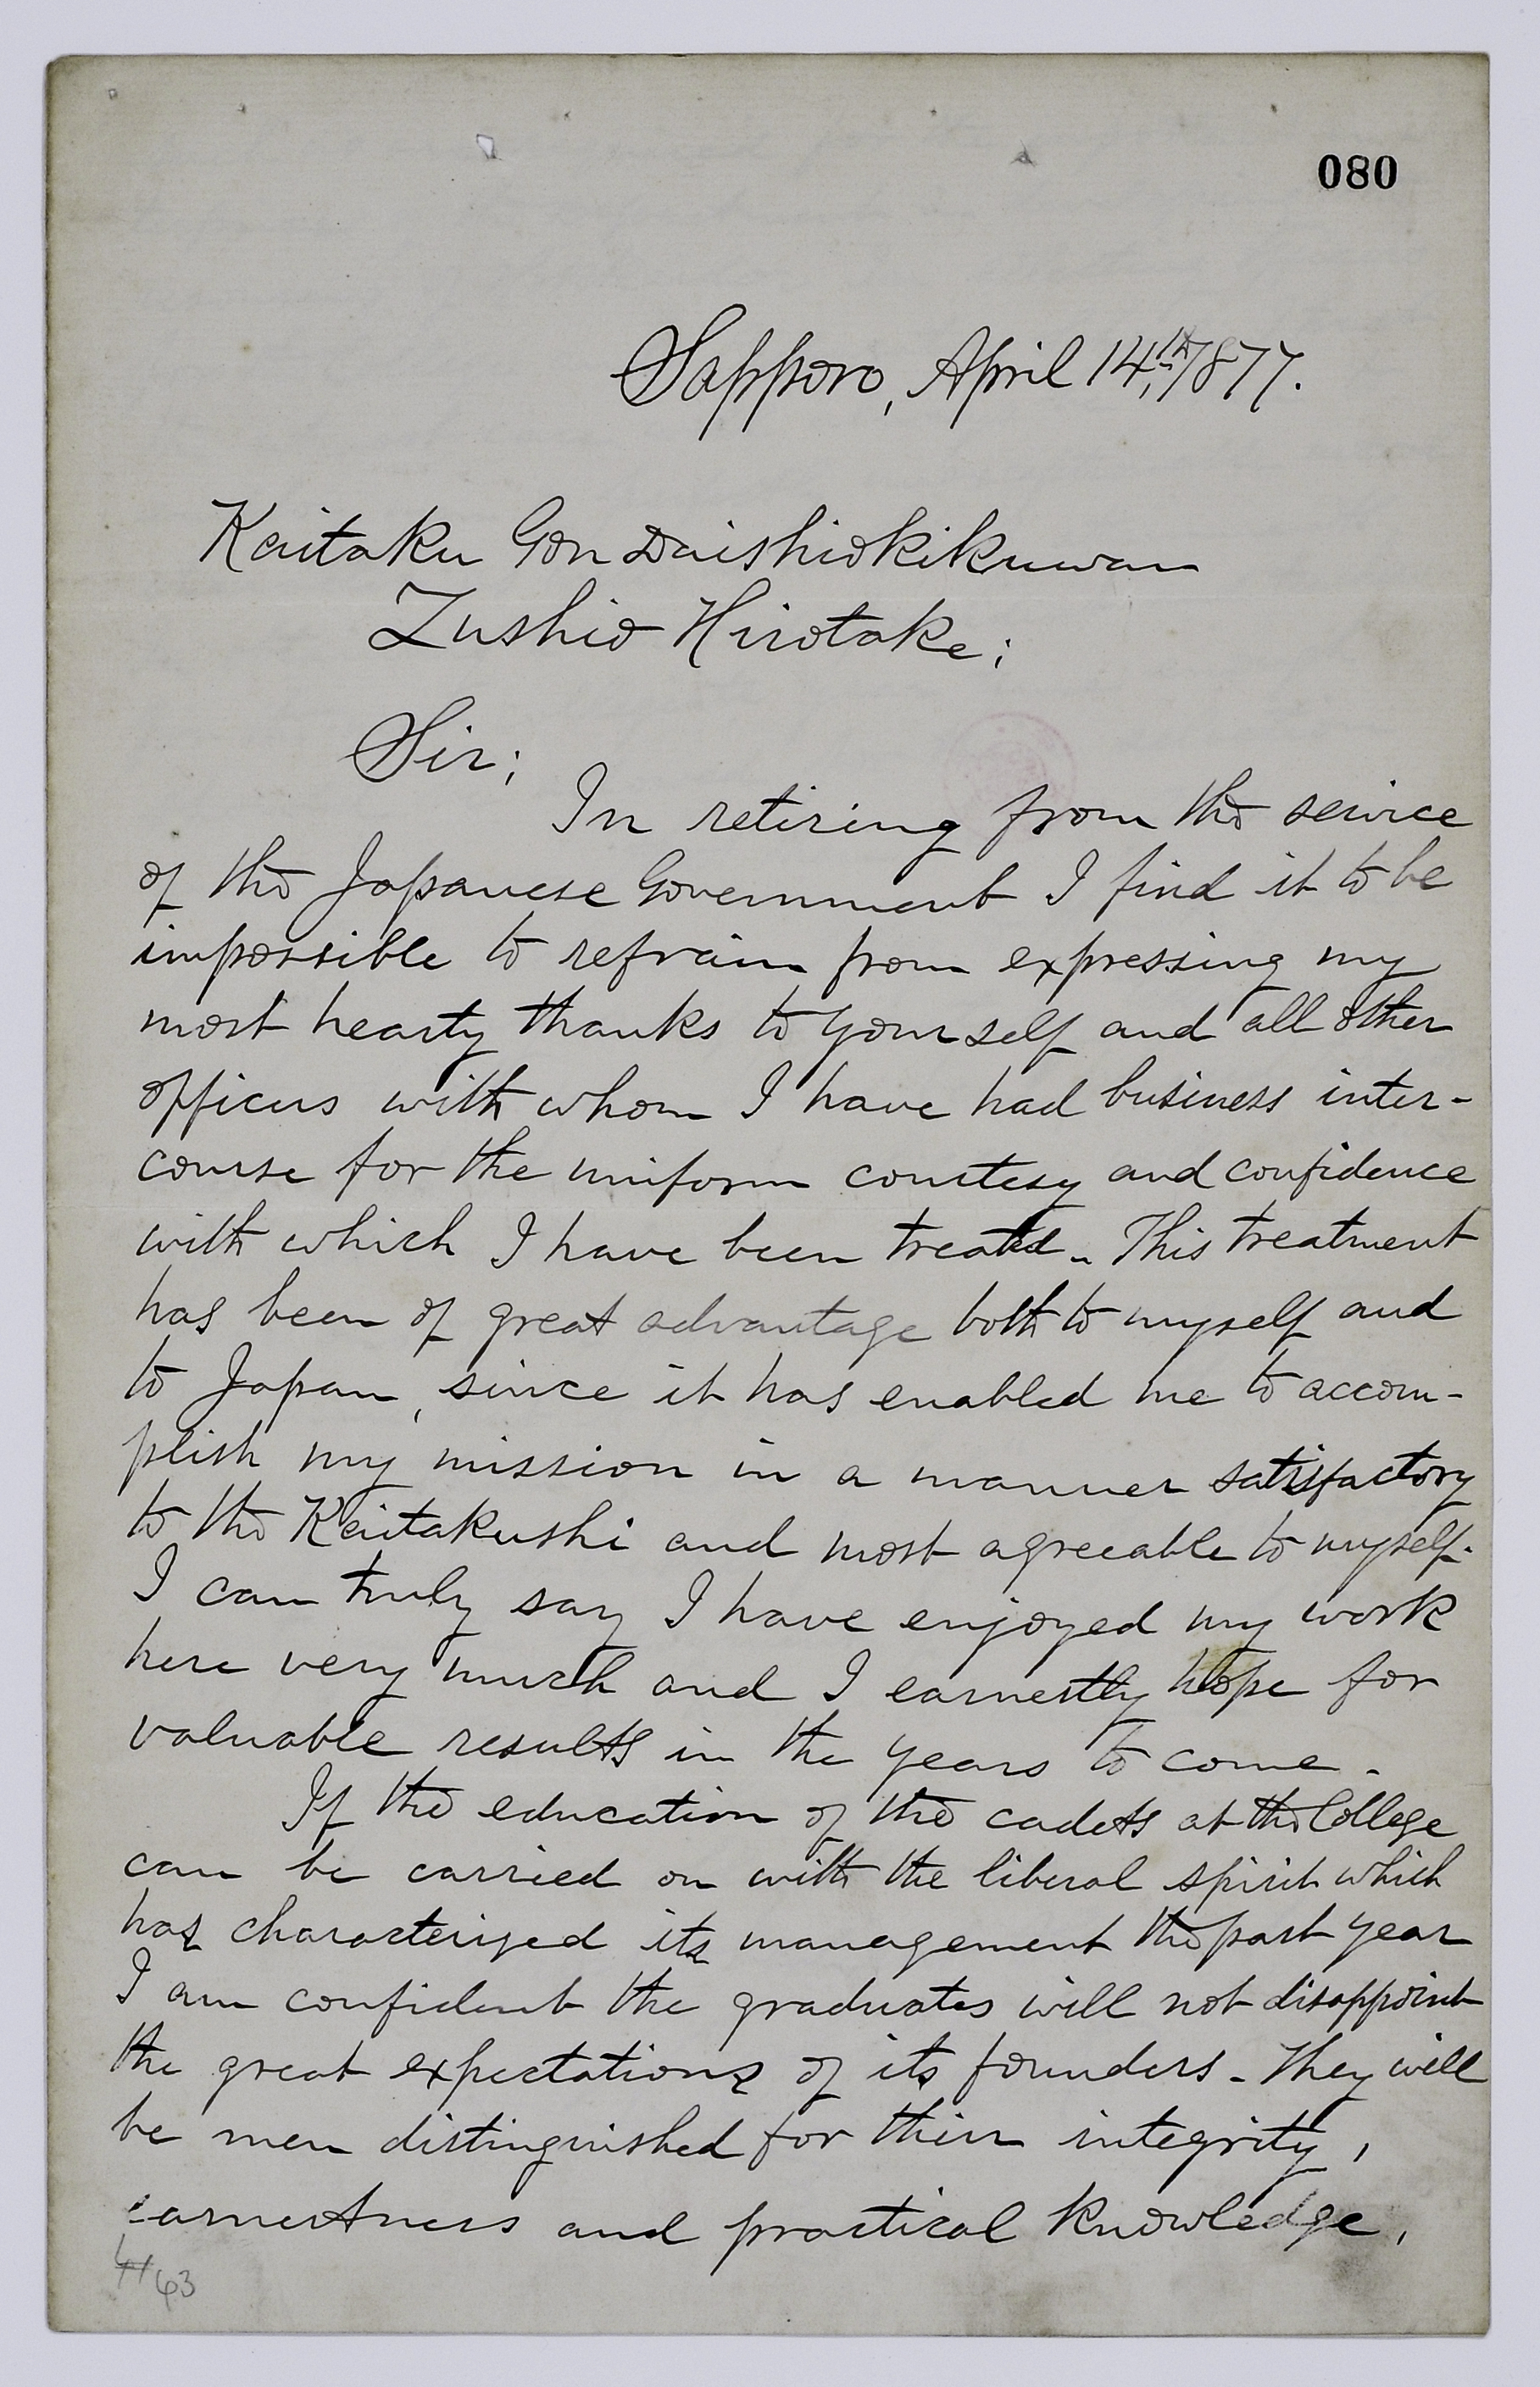 080
Sapporo, April 14th, 1877.
Kaitaku Gon Daishiokikuwan
Zushio Hirotake;
Sir;
In retiring from the service
of the Japanese Government I find it to be
impossible to refrain from expressing my
most hearty thanks to yourself and all other
officers with whom I have had business inter-
course for the uniform courtesy and confidence
with which I have been treated. This treatment
has been of great advantage both to myself and
to Japan, since it has enabled me to accom-
plish my mission in a manner satisfactory
to the Kaitakushi and most agreeable to myself.
I can truly say I have enjoyed my work
here very much and I earnestly hope for
valuable results in the years to come.
If the education of the cadets at the College
can be carried on with the liberal spirit which
has characterized its management the past year
I am confident the graduates will not disappoint
the great expectations of its founders. They will
be men distinguished for their integrity,
earnestness and practical knowledge,
63